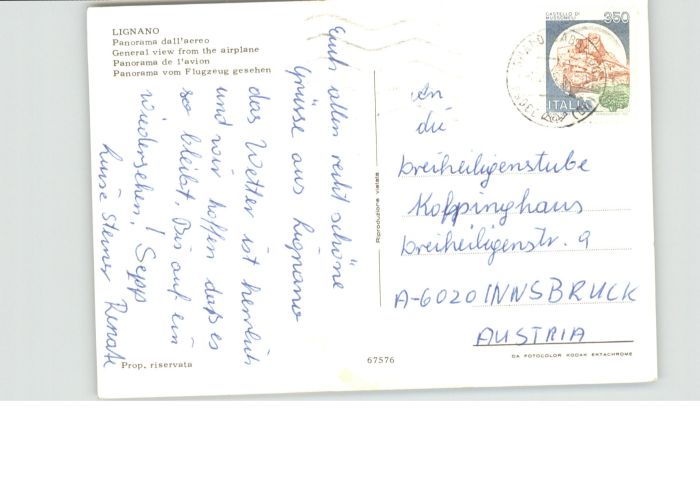 LIGNANO
Panorama dall'aereo
General view from the airplane
Panorama de l'avion
Panorama vom Flugzeug gesehen
Euch allen recht schöne
Grüsse aus Lignano
das Wetter ist herrlich
und wir hoffen daß es
so bleibt. Bis auf ein
wiedersehen! Sepp
Luise Steiner Renate
Prop. riservata
67576
Riproduzione vietata
CASTELLO DI
MUSSOMELI
350
ITALIA
An
die
Dreiheiligenstube
Kolpinghaus
Dreiheiligenstr. 9
A-6020 INNSBRUCK
AUSTRIA
DA FOTOCOLOR KODAK EKTACHROME